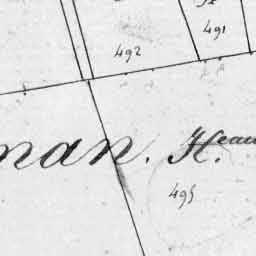 491
492
nan. H.eau
495